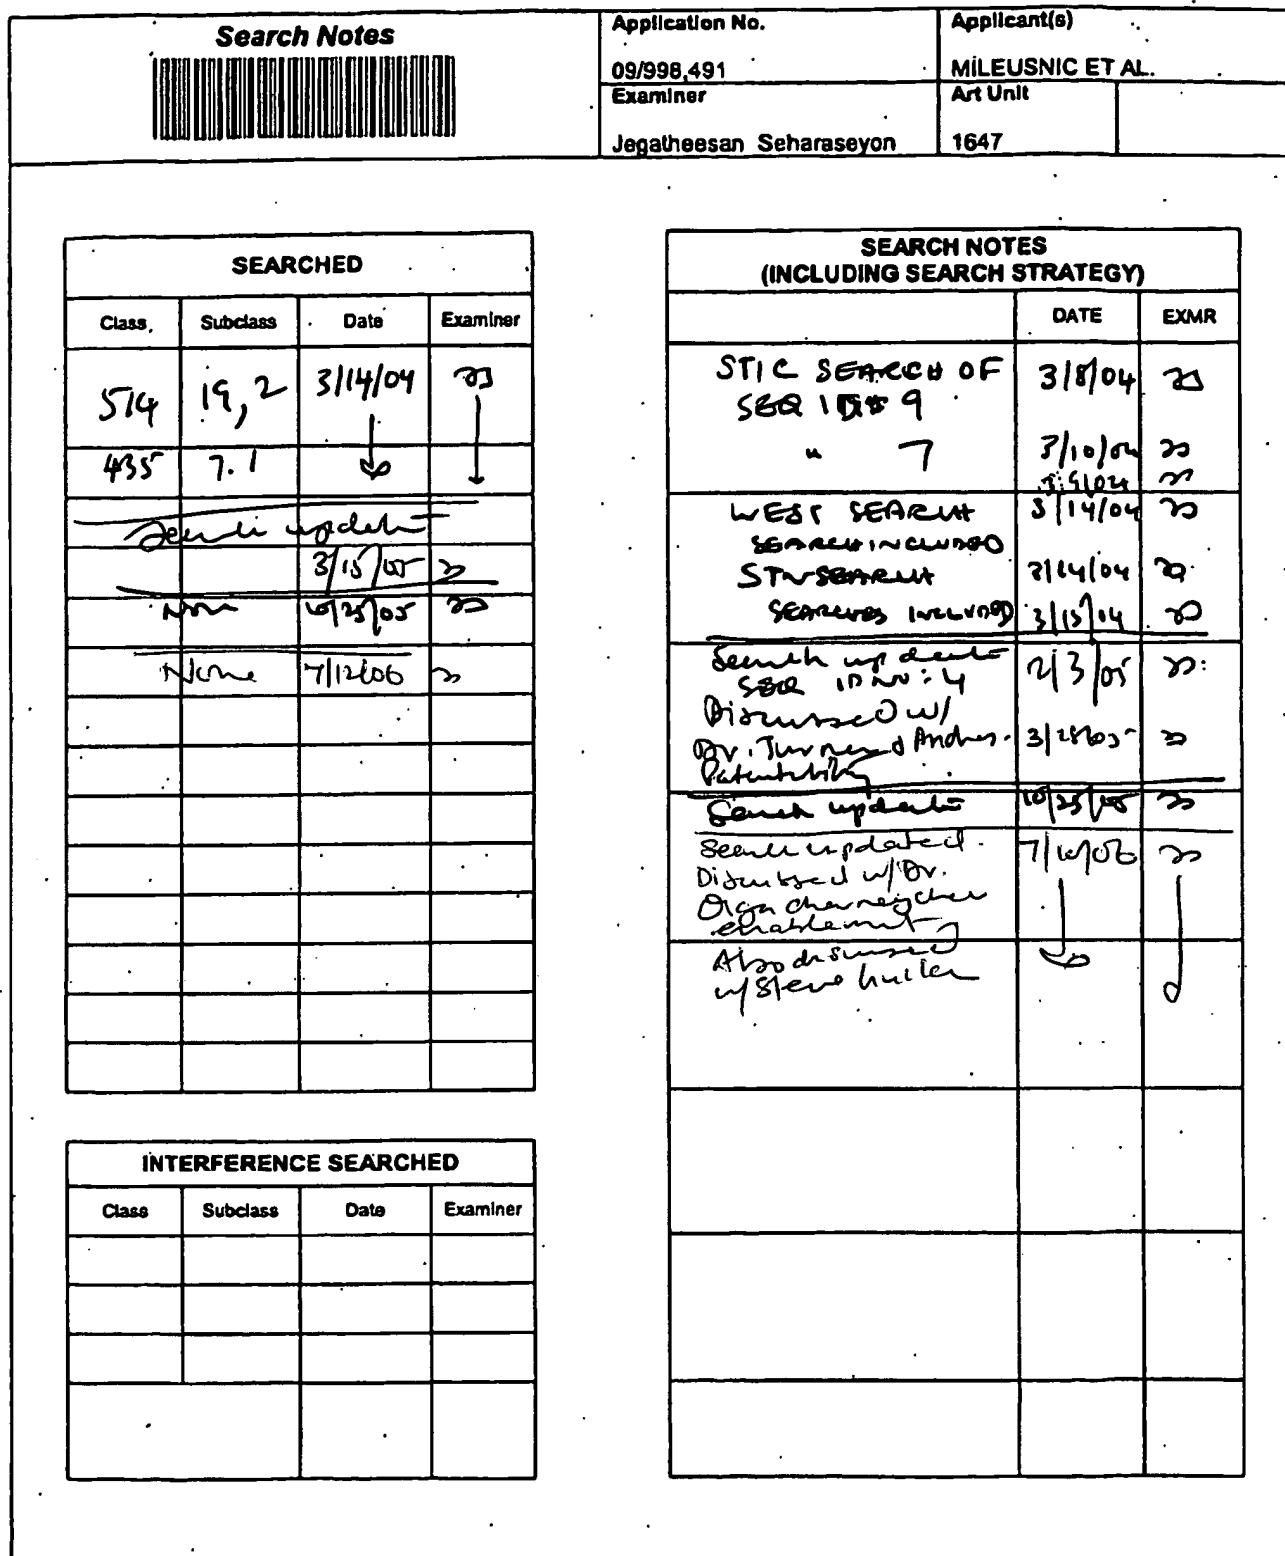 Search Notes
Application No.
09/998,491
Applicant(s)
MILEUSNIC ET AL.
Examiner
Jegatheesan Seharaseyon
Art Unit
1647
SEARCHED
Class Subclass Date Examiner
514 19, 2 3/14/04 JS
435 7.1
Search update
3/15/05 JS
None 10/25/05 JS
None 7/12/06 JS
INTERFERENCE SEARCHED
Class Subclass Date Examiner
SEARCH NOTES
(INCLUDING SEARCH STRATEGY)
DATE EXMR
STIC SEARCH OF 3/8/04 JS
SEQ ID# 9
" 7 3/10/04 JS
3/9/04 JS
WEST SEARCH 3/14/04 JS
SEARCH INCLUDED
STN SEARCH 3/14/04 JS
SEARCHES INCLUDED 3/15/04 JS
Search update 2/3/05 JS
SEQ ID NO: 4
Discussed w/
Dr. Turner & Andres. 3/28/05 JS
Patentability
Search update 10/25/05 JS
Search updated. 7/10/06 JS
Discussed w/ Dr.
Olga
enablement
Also discussed
w/ Steve